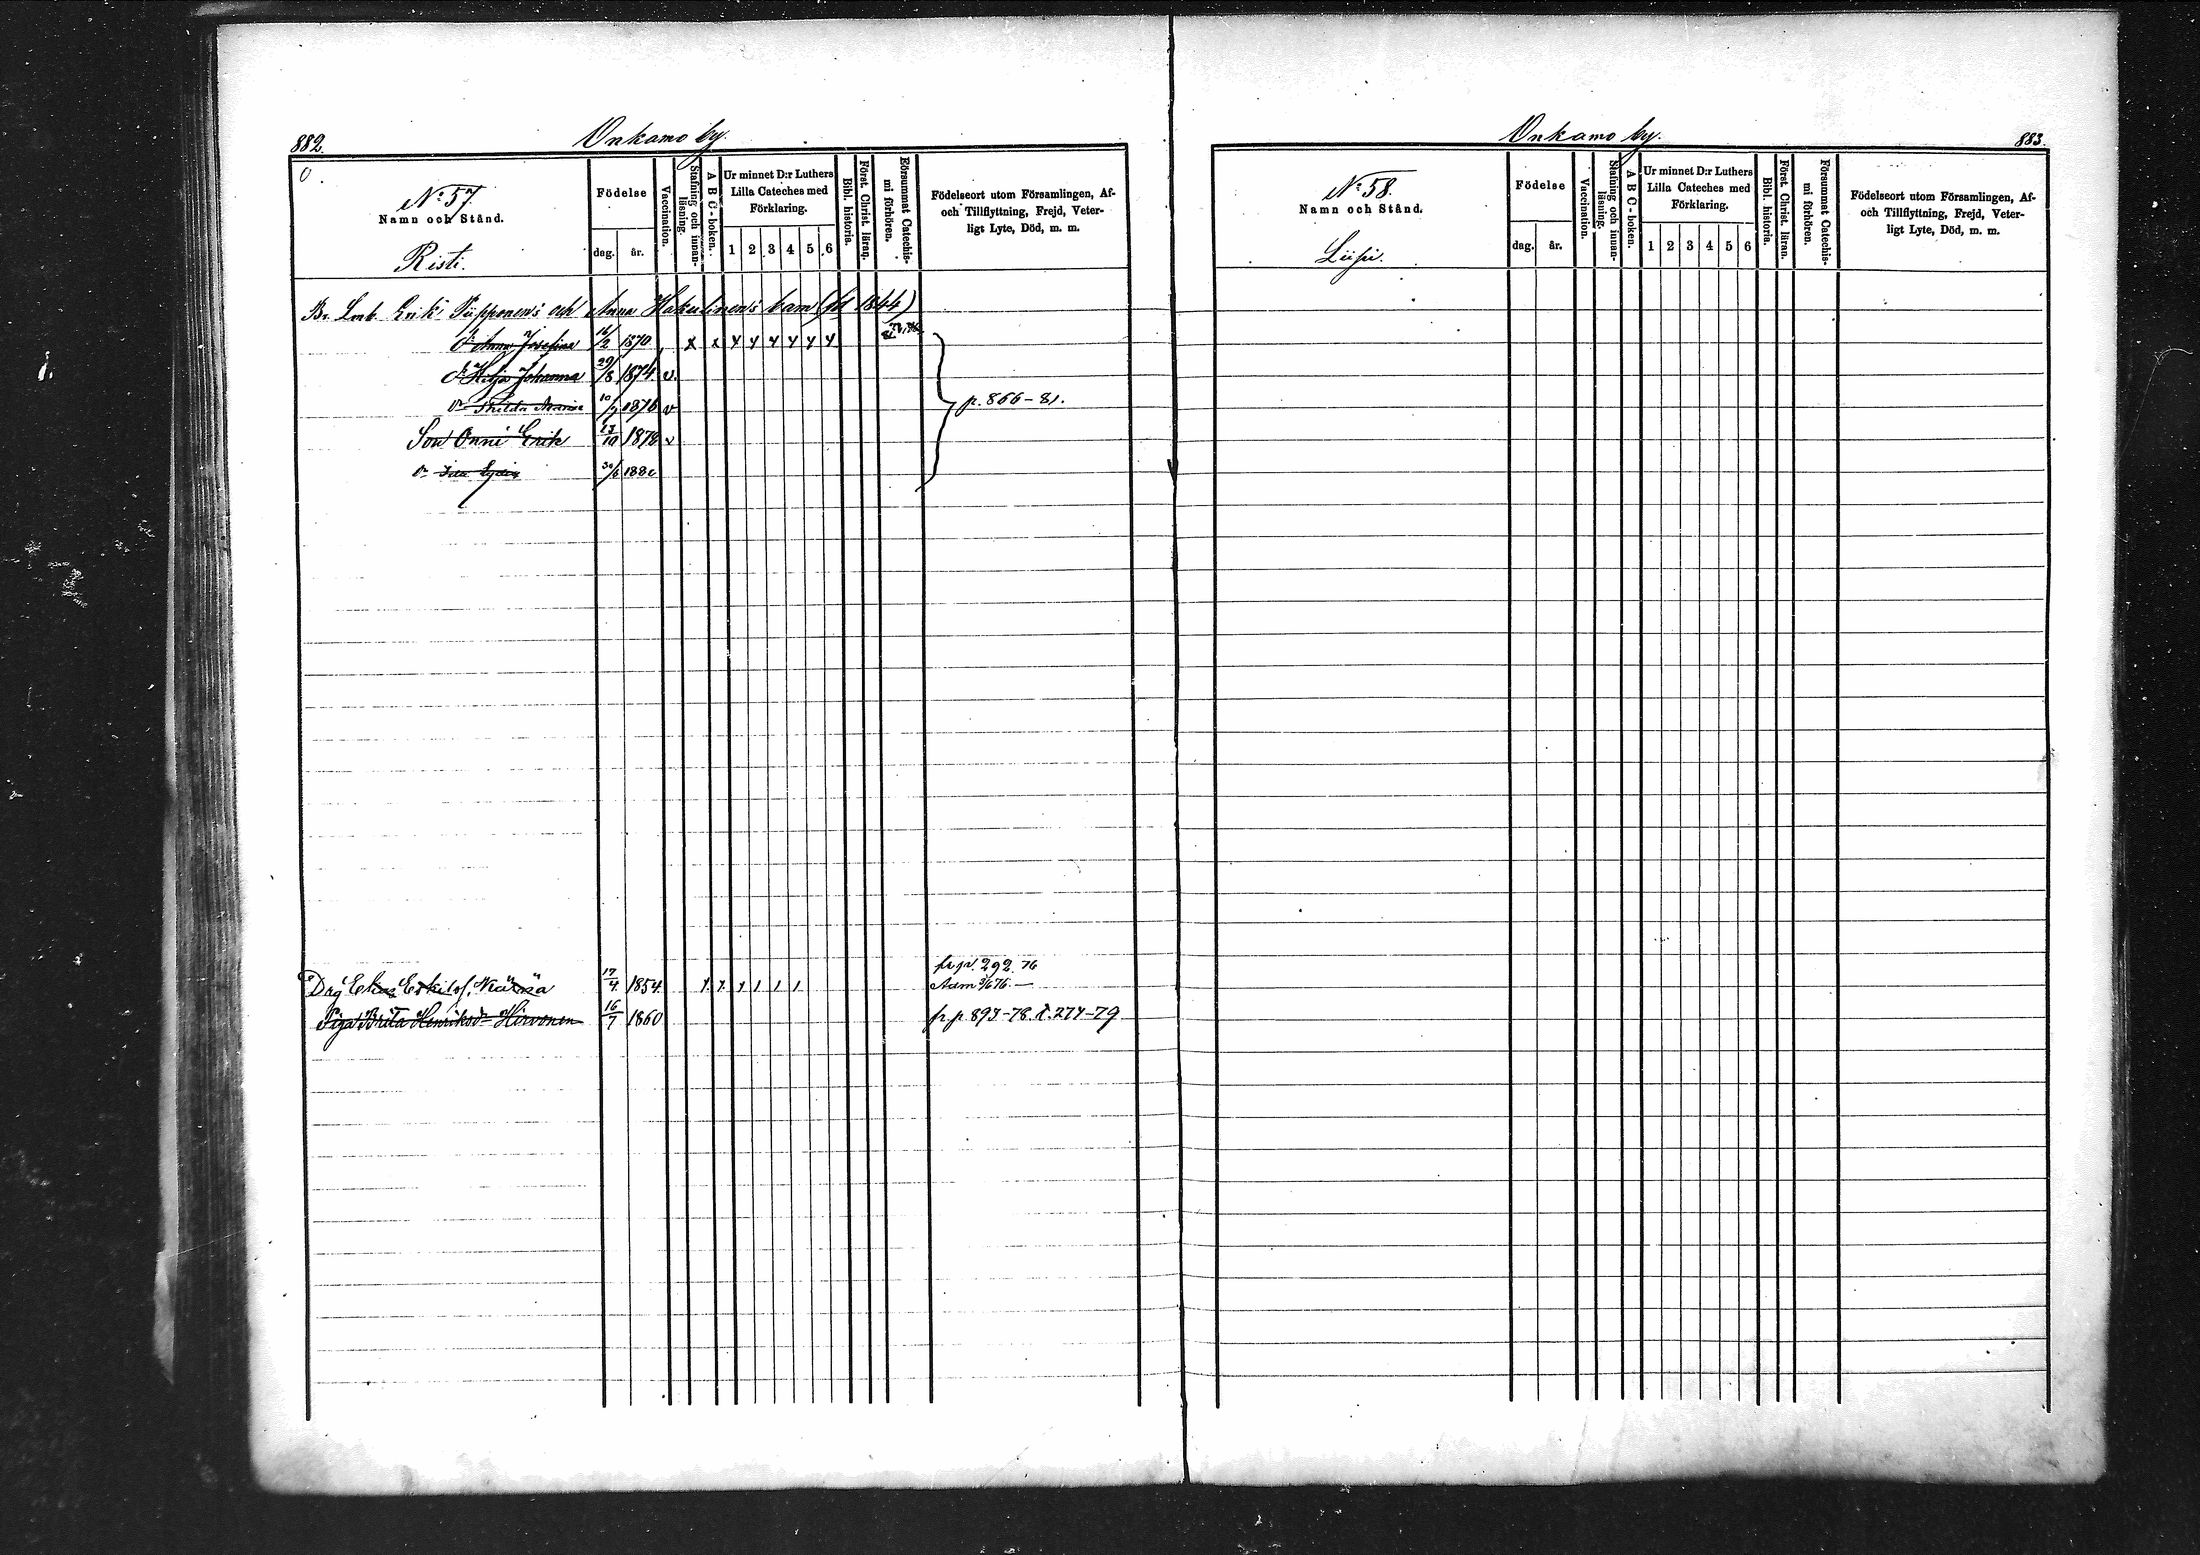 882. Onkamo by.
0.
No 57.
Namn och Stånd.
Risti.
Födelse
dag. år.
Vaccination.
Stafning och innan-
läsning.
A B C-boken.
Ur minnet D:r Luthers
Lilla Cateches med
Förklaring.
1 2 3 4 5 6
Bibl. historia.
Först. Christ. läran.
Försummat Catechis-
mi förhören.
Födelseort utom Församlingen, Af-
och Tillflyttning, Frejd, Veter-
ligt Lyte, Död, m. m.
Br Lmb Erik Piipponen's och Anna Hakulinen's barn (fd 1844)
dr Anna Josefina 16/2 1870 x x x x x x x x
dr Hilja Johanna 29/8 1874 v.
dr Hilda Maria 10/7 1876 v
p. 866-81.
Son Onni Erik 13/10 1878 v
dr Ida Lydia 30/6 1880
fr p. 292. 76
Drg Erkilsf. 17/4 1854
Adm 76.
Piga Brita Henriksdr Hirvonen 16/7 1860 fr p. 893-78. t. 277-79
Onkamo by. 883.
No 58.
Namn och Stånd.
Födelse
dag. år.
Vaccination.
Stafning och innan-
läsning.
A B C-boken.
Ur minnet D:r Luthers
Lilla Cateches med
Förklaring.
1 2 3 4 5 6
Bibl. historia.
Först. Christ. läran.
Försummat Catechis-
mi förhören.
Födelseort utom Församlingen, Af-
och Tillflyttning, Frejd, Veter-
ligt Lyte, Död, m. m.